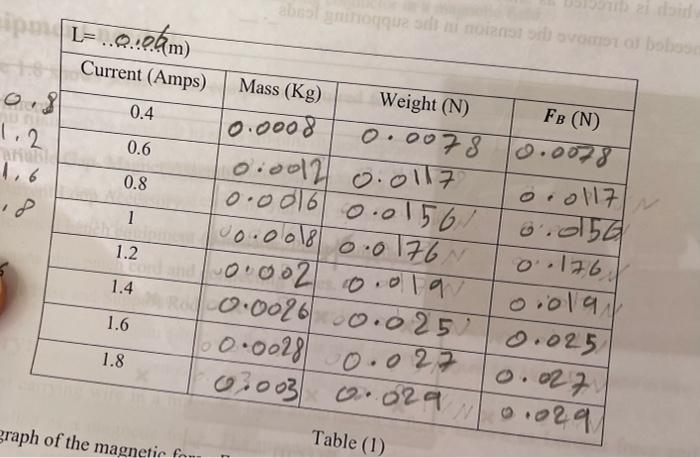 L= 0.06(m)
Current (Amps) Mass (Kg) Weight (N) FB (N)
0.4 0.0008 0.0078 0.0078
0.6 0.0012 0.0117 0.0117
0.8 0.0016 0.0156 0.0156
1 0.0018 0.0176 0.176
1.2 0.002 0.019 0.019
1.4 0.0026 0.025 0.025
1.6 0.0028 0.027 0.027
1.8 0.003 0.029 0.029
0.8
1.2
1.6
.8
Table (1)
graph of the magnetic